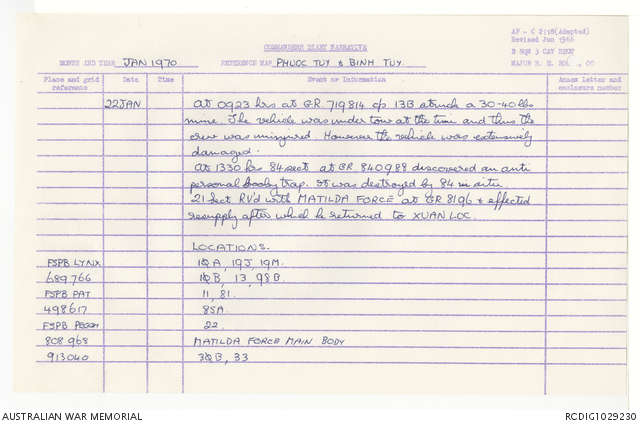 AF - C 2118 (Adapted)
Revised Jun 1966
COMMANDERS DIARY NARRATIVE
B SQN 3 CAV REGT
MONTH AND YEAR JAN 1970 REFERENCE MAP PHUOC TUY & BINH TUY.
MAJOR
Place and grid reference Date Time Event or Information Annex letter and enclosure number
22 JAN At 0923 hrs at GR. 719814 c/s 13B struck a 30-40 lbs
mine. The vehicle was under tow at the time and thus the
crew was uninjured. However the vehicle was extensively
damaged.
At 1330 hrs 84 sect at GR. 840988 discovered an anti
personal booby trap. It was destroyed by 84 in situ
21 Sect RV'd with MATILDA FORCE at GR 8196 & effected
resupply after which he returned to XUAN LOC.
LOCATIONS.
FSPB LYNX 1QA, 19J, 19M.
689766 1QB, 13, 98B.
FSPB PAT 11, 81.
498617 85A.
FSPB PEGGY 22.
808968 MATILDA FORCE MAIN BODY
913040 3QB, 33
AUSTRALIAN WAR MEMORIAL
RCDIG1029230